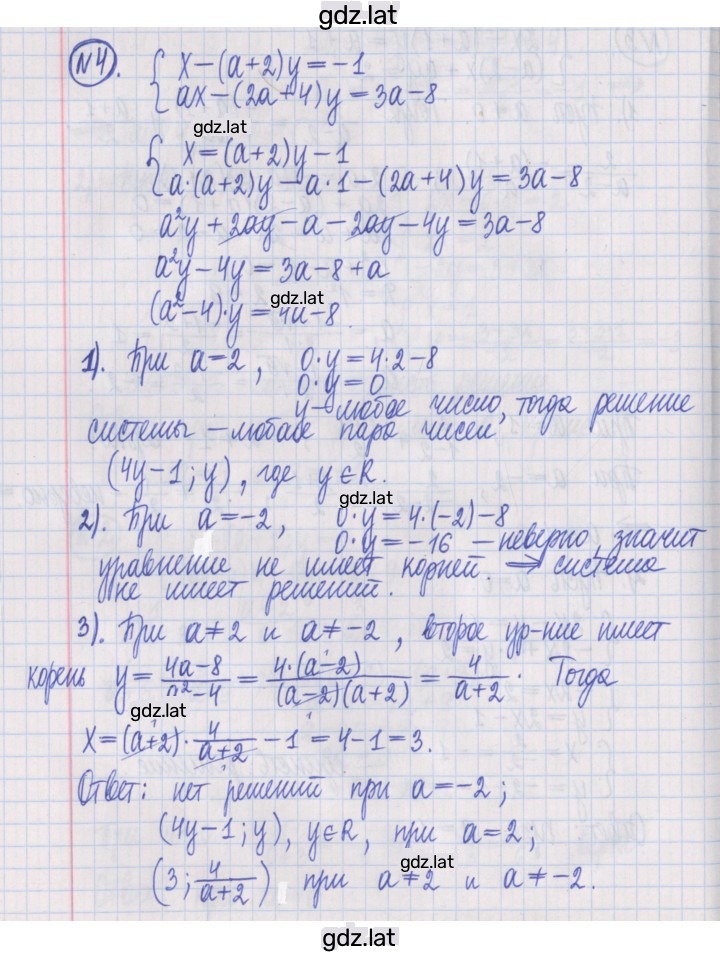 gdz.lat
№4. { x-(a+2)y=-1
ax-(2a+4)y=3a-8
gdz.lat
{ x=(a+2)y-1
a·(a+2)y-a·1-(2a+4)y=3a-8
a²y+2ay-a-2ay-4y=3a-8
a²y-4y=3a-8+a
gdz.lat
(a²-4)·y=4a-8
1). При a=2, 0·y=4·2-8
0·y=0
y-любое число, тогда решение
системы - любабе пара чисел
(4y-1; y), где y∈R.
gdz.lat
2). При a=-2, 0·y=4·(-2)-8
0·y=-16 - неверно, значит
уравнение не имеет корней. ⇒ система
не имеет решений.
3). При a≠2 и a≠-2, второе ур-ние имеет
корень y=\frac{4a-8}{a²-4}=\frac{4·(a-2)}{(a-2)(a+2)}=\frac{4}{a+2}. Тогда
x=(a+2)·\frac{4}{a+2}-1=4-1=3.
Ответ: нет решений при a=-2;
(4y-1; y), y∈R, при a=2;
gdz.lat
(3; \frac{4}{a+2}) при a≠2 и a≠-2.
gdz.lat